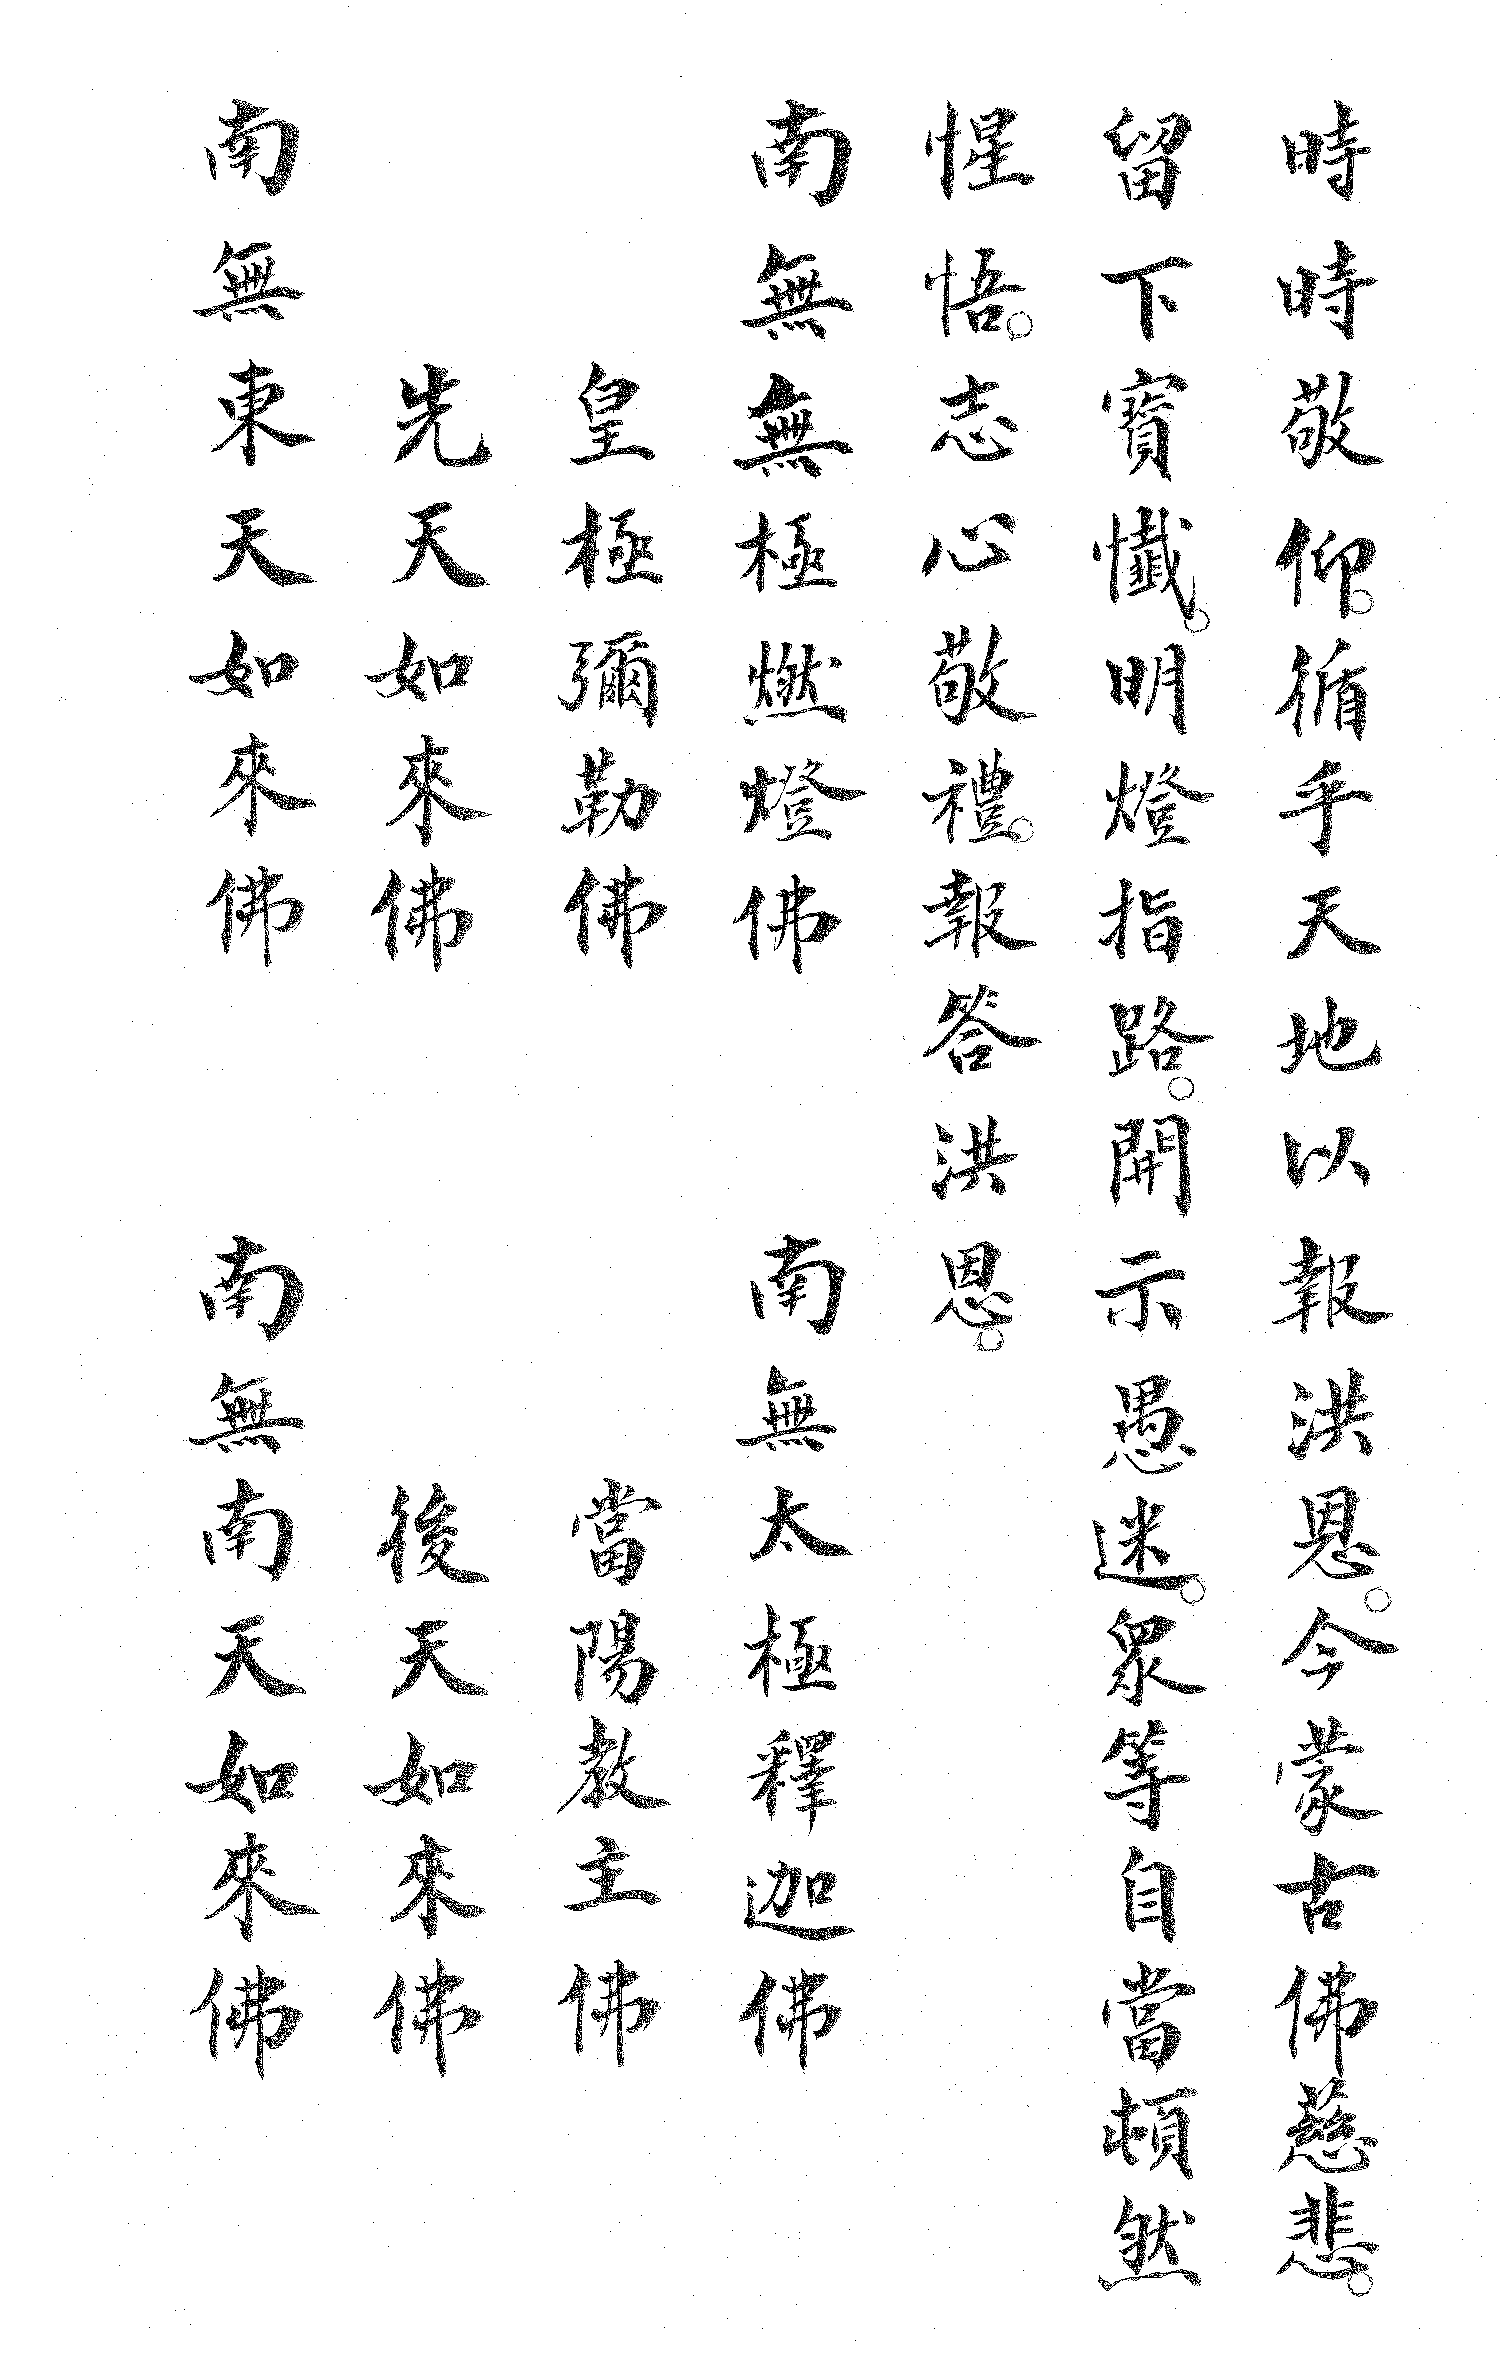 時時敬仰。循乎天地以報洪恩。今蒙古佛慈悲。
留下寶懺。明燈指路。開示愚迷。眾等自當頓然
惺悟。志心敬禮。報答洪恩。
南無無極燃燈佛　南無太極釋迦佛
皇極彌勒佛　當陽教主佛
先天如來佛　後天如來佛
南無東天如來佛　南無南天如來佛